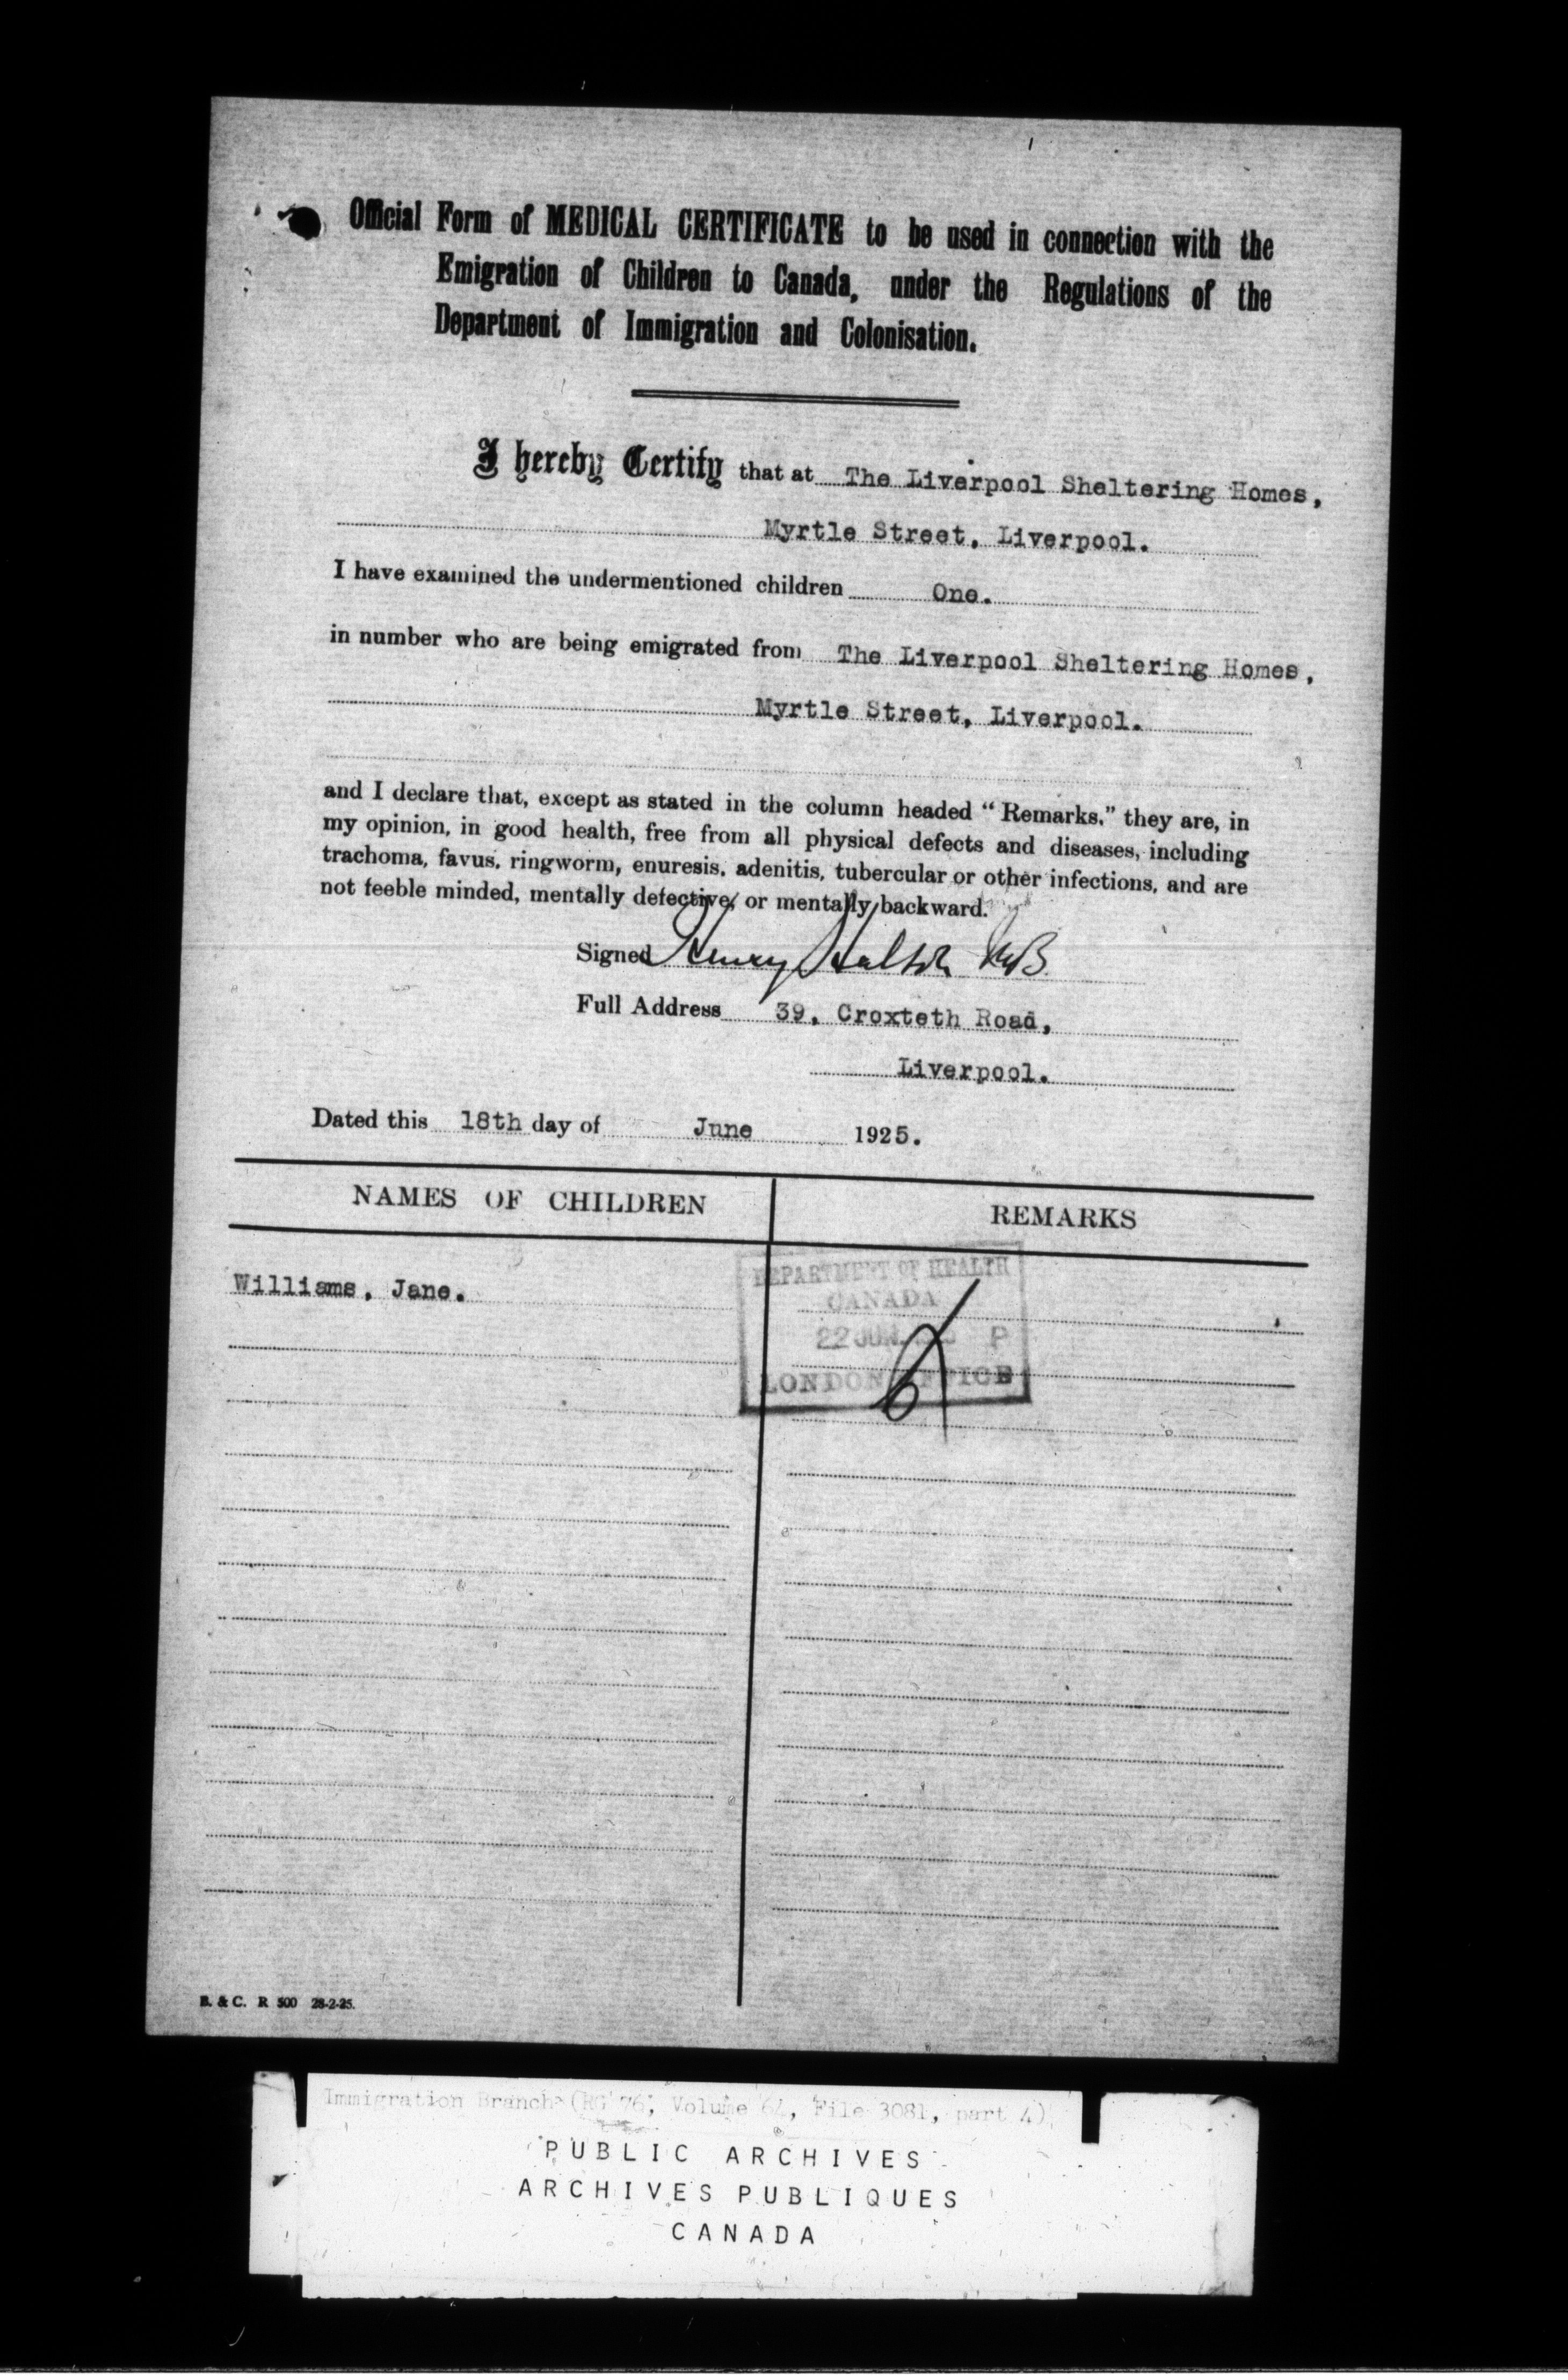 Official Form of MEDICAL CERTIFICATE to be used in connection with the
Emigration of Children to Canada, under the Regulations of the
Department of Immigration and Colonisation.
I hereby Certify that at The Liverpool Sheltering Homes,
Myrtle Street, Liverpool.
I have examined the undermentioned children One.
in number who are being emigrated from The Liverpool Sheltering Homes,
Myrtle Street, Liverpool.
and I declare that, except as stated in the column headed “Remarks.” they are, in
my opinion, in good health, free from all physical defects and diseases, including
trachoma, favus, ringworm, enuresis, adenitis, tubercular or other infections, and are
not feeble minded, mentally defective, or mentally backward.
Signed Henry
Full Address 39, Croxteth Road,
Liverpool.
Dated this 18th day of June 1925.
NAMES OF CHILDREN REMARKS
Williams, Jane.
DEPARTMENT OF HEALTH
CANADA
22 JUN P
LONDON OFFICE
B. & C. R 500 28-2-25.
Immigration Branch (RG 76, Volume 64, File 3081, part 4)
PUBLIC ARCHIVES
ARCHIVES PUBLIQUES
CANADA